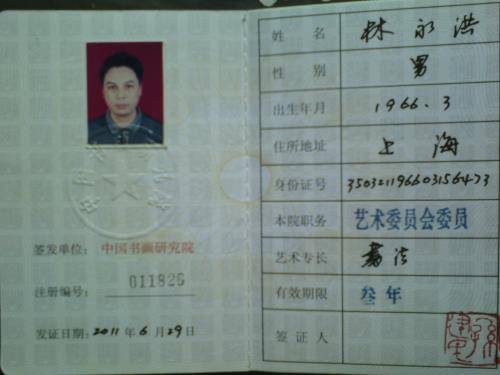 签发单位: 中国书画研究院
注册编号: 011826
发证日期: 2011年6月29日
姓名 林永洪
性别 男
出生年月 1966.3
住所地址 上海
身份证号
本院职务 艺术委员会委员
艺术专长 书法
有效期限 叁年
签证人